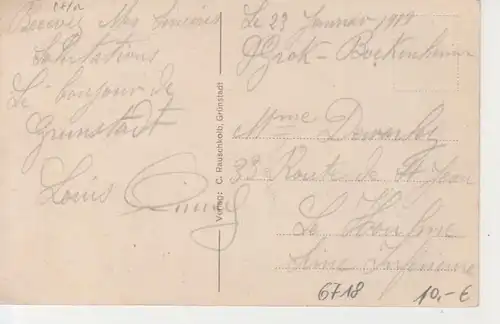 Recevez Mes Sincères
Salutations
Le bonjour de
Grünstadt
Louis
Verlag: C. Rauschkolb, Grünstadt
Le 23 Janvier 1919
Grok-Bockenheim
Mme
32 Route de St Jean
Le Houlme
Seine Inférieure
6718
10,- €